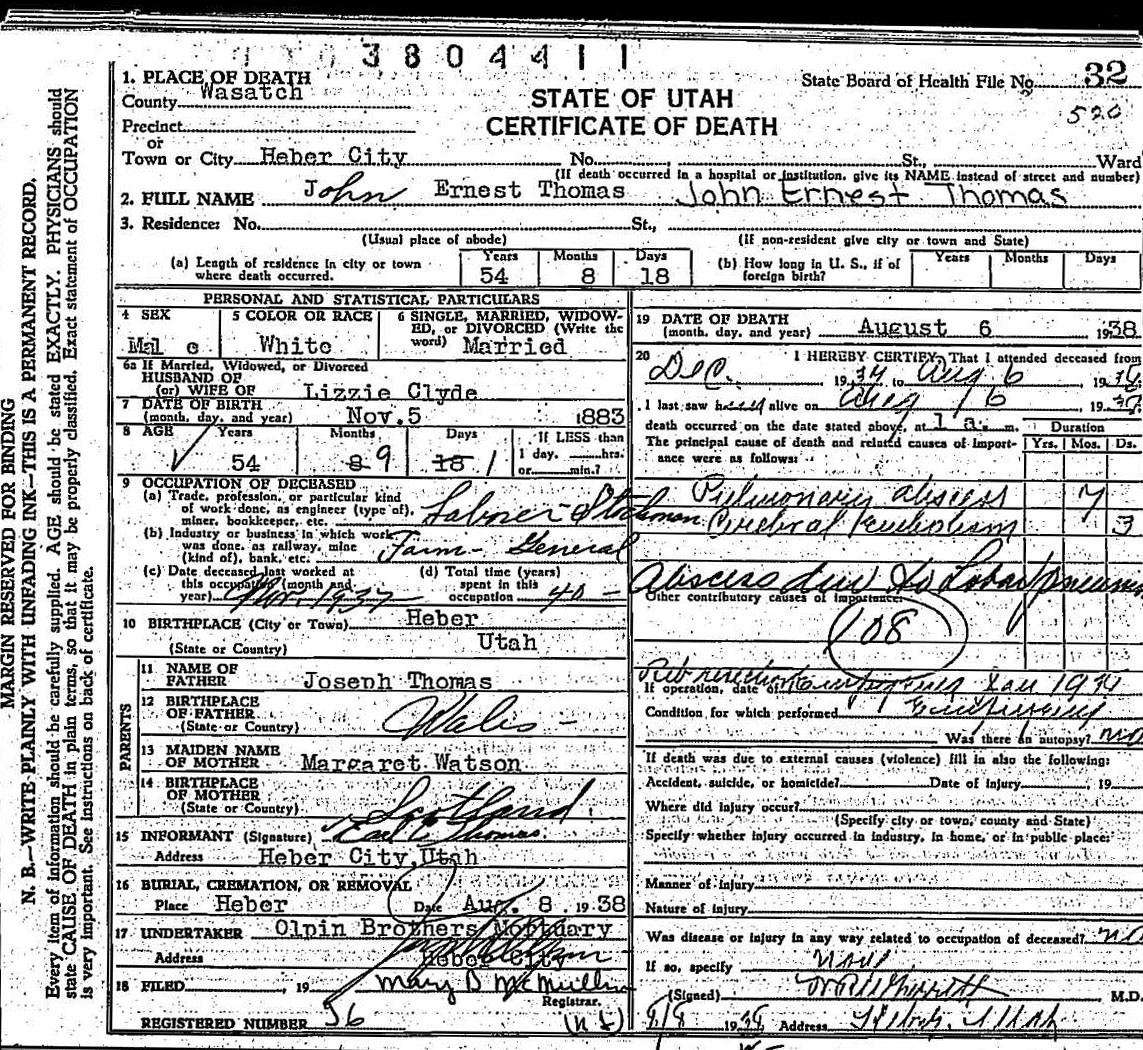 3804411
1. PLACE OF DEATH
State Board of Health File No. 32
County Wasatch
STATE OF UTAH
520
Precinct
CERTIFICATE OF DEATH
or
Town or City Heber City No. St., Ward
(If death occurred in a hospital or institution, give its NAME instead of street and number)
2. FULL NAME John Ernest Thomas John Ernest Thomas
3. Residence: No. St.,
(Usual place of abode) (If non-resident give city or town and State)
(a) Length of residence in city or town where death occurred. Years 54 Months 8 Days 18
(b) How long in U. S., if of foreign birth? Years Months Days
PERSONAL AND STATISTICAL PARTICULARS
4 SEX Male
5 COLOR OR RACE White
6 SINGLE, MARRIED, WIDOWED, or DIVORCED (Write the word) Married
6a If Married, Widowed, or Divorced
HUSBAND OF
(or) WIFE OF Lizzie Clyde
7 DATE OF BIRTH
(month, day, and year) Nov. 5 1883
8 AGE Years 54 Months 8 9 Days 18 1
If LESS than
1 day, hrs.
or min.?
9 OCCUPATION OF DECEASED
(a) Trade, profession, or particular kind
of work done, as engineer (type of),
miner, bookkeeper, etc. Laborer - Stockman
(b) Industry or business in which work
was done, as railway, mine
(kind of), bank, etc. Farm - General
(c) Date deceased last worked at
this occupation (month and
year) 1937
(d) Total time (years)
spent in this
occupation 40 -
10 BIRTHPLACE (City or Town) Heber
(State or Country) Utah
PARENTS
11 NAME OF
FATHER Joseph Thomas
12 BIRTHPLACE
OF FATHER
(State or Country) Wales -
13 MAIDEN NAME
OF MOTHER Margaret Watson
14 BIRTHPLACE
OF MOTHER
(State or Country) Scotland
15 INFORMANT (Signature) Earl C. Thomas
Address Heber City, Utah
16 BURIAL, CREMATION, OR REMOVAL
Place Heber Date Aug. 8, 1938
17 UNDERTAKER Olpin Brothers Mortuary
Address Heber City
18 FILED , 19 Mary D McMullin
Registrar.
REGISTERED NUMBER 56
19 DATE OF DEATH
(month, day, and year) August 6 1938
20 I HEREBY CERTIFY, That I attended deceased from
Dec. 19 to Aug 6, 19
I last saw alive on Aug 6, 19
death occurred on the date stated above, at 1 a. m.
Duration
The principal cause of death and related causes of importance were as follows: Yrs. Mos. Ds.
Pulmonary abscess 7
Cerebral Embolism 3
Abscess due to Lobar pneumonia
Other contributory causes of importance:
108
Rib resection
If operation, date of
Condition for which performed
Was there an autopsy? no
If death was due to external causes (violence) fill in also the following:
Accident, suicide, or homicide? Date of injury , 19
Where did injury occur?
(Specify city or town, county and State)
Specify whether injury occurred in industry, in home, or in public place:
Manner of injury
Nature of injury
Was disease or injury in any way related to occupation of deceased? no
If so, specify
(Signed) M.D.
19 Address
MARGIN RESERVED FOR BINDING
N. B.—WRITE PLAINLY WITH UNFADING INK—THIS IS A PERMANENT RECORD.
Every item of information should be carefully supplied. AGE should be stated EXACTLY. PHYSICIANS should
state CAUSE OF DEATH in plain terms, so that it may be properly classified. Exact statement of OCCUPATION
is very important. See instructions on back of certificate.